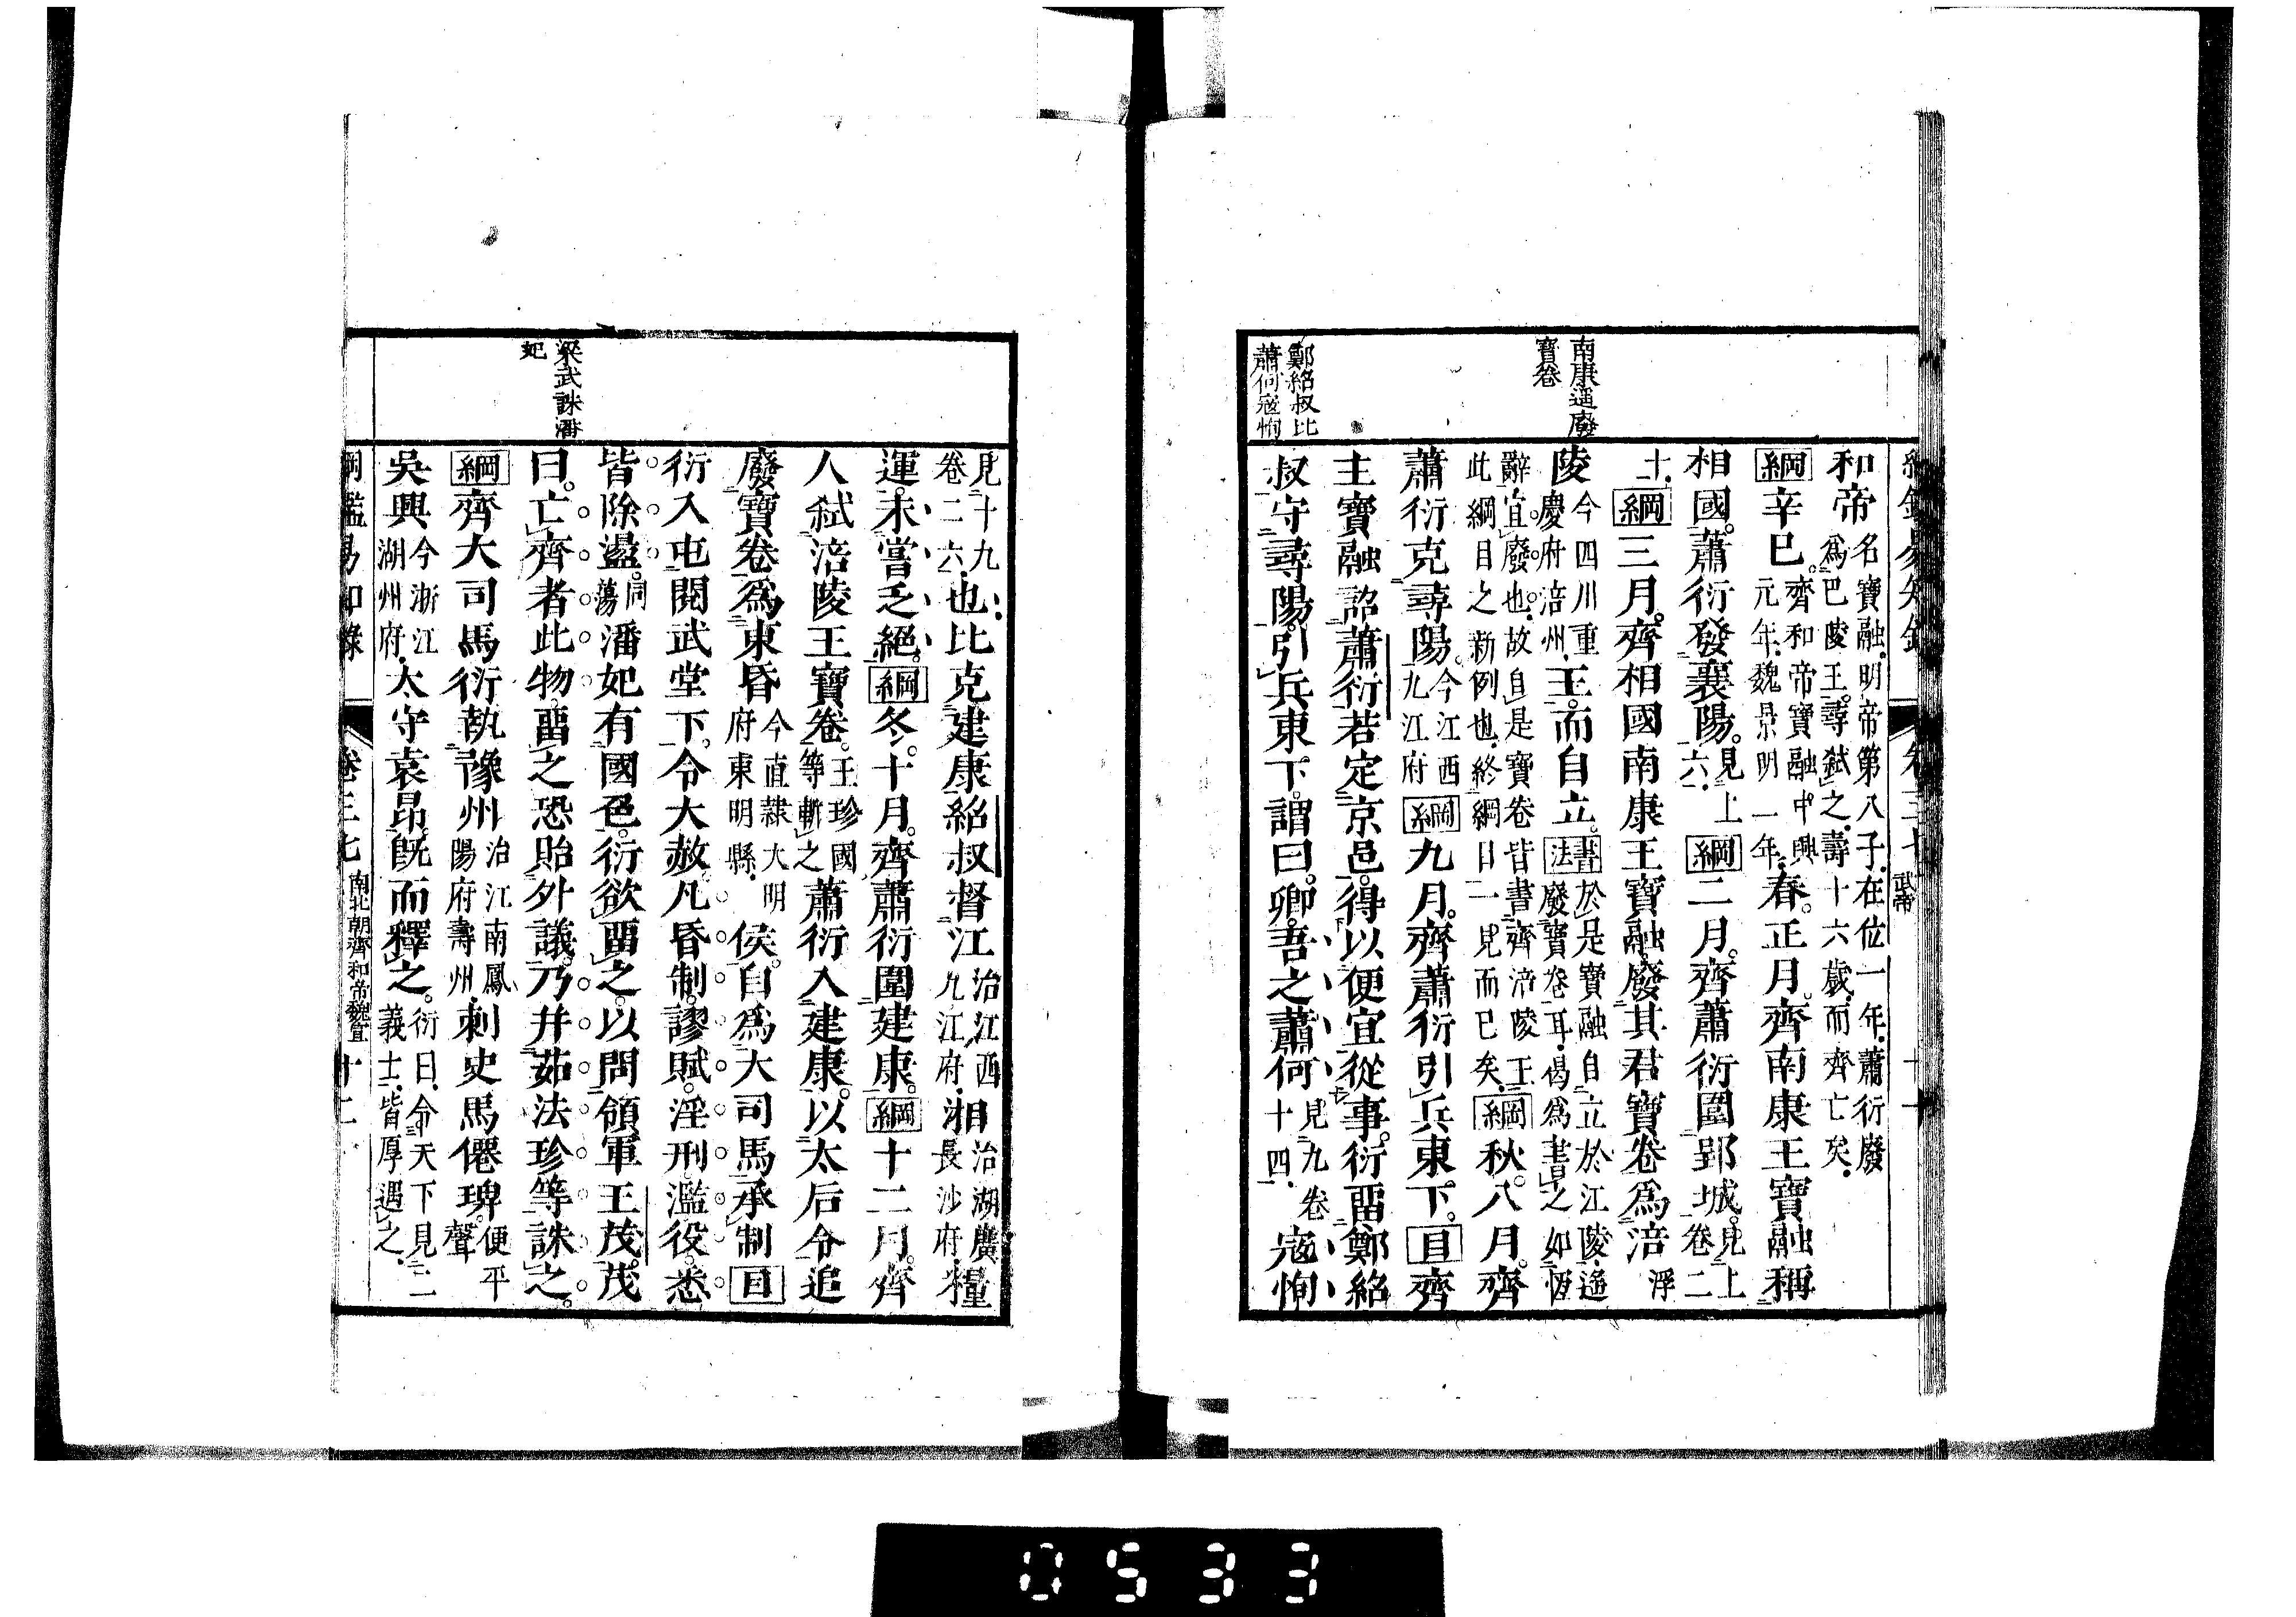 南康遥廢
寳卷
鄭紹叔比
蕭何寇恂
卷三七
武帝
十一
和帝名寶融明帝第八子在位一年蕭衍廢
爲巴陵王尋弑之壽十六歲而齊亡矣
綱辛巳齊和帝寶融中興元年魏景明一年春正月齊南康王寶融稱
相國蕭衍發襄陽見上六綱二月齊蕭衍圍郢城見上卷二
十綱三月齊相國南康王寶融廢其君寶卷爲涪浮
陵今四川重慶府涪州王而自立書法於是寶融自立於江陵遙廢寶卷耳曷爲書之如恆
辭宜廢也故自是寶卷皆書齊涪陵王此綱目之新例也終綱目一見而已矣綱秋八月齊
蕭衍克尋陽今江西九江府綱九月齊蕭衍引兵東下目齊
主寶融詔蕭衍若定京邑得以便宜從事衍畱鄭紹
叔守尋陽引兵東下謂曰卿吾之蕭何見九卷十四寇恂
梁武誅潘
妃
見十九卷二六也比克建康紹叔督江治江西九江府湘治湖廣長沙府糧
運未嘗乏絕綱冬十月齊蕭衍圍建康綱十二月齊
人弑涪陵王寶卷王珍國等斬之蕭衍入建康以太后令追
廢寶卷爲東昏今直隸大明府東明縣侯自爲大司馬承制目
衍入屯閱武堂下令大赦凡昏制謬賦淫刑濫役悉
皆除盪同蕩潘妃有國色衍欲畱之以問領軍王茂茂
曰亡齊者此物畱之恐貽外議乃幷茹法珍等誅之
綱齊大司馬衍執豫州治江南鳳陽府壽州刺史馬僊琕便平聲
吳興今浙江湖州府太守袁昂旣而釋之衍曰令天下見二義士皆厚遇之
綱鑑易知錄
卷三七
南北朝齊和帝魏宣
十二
0533